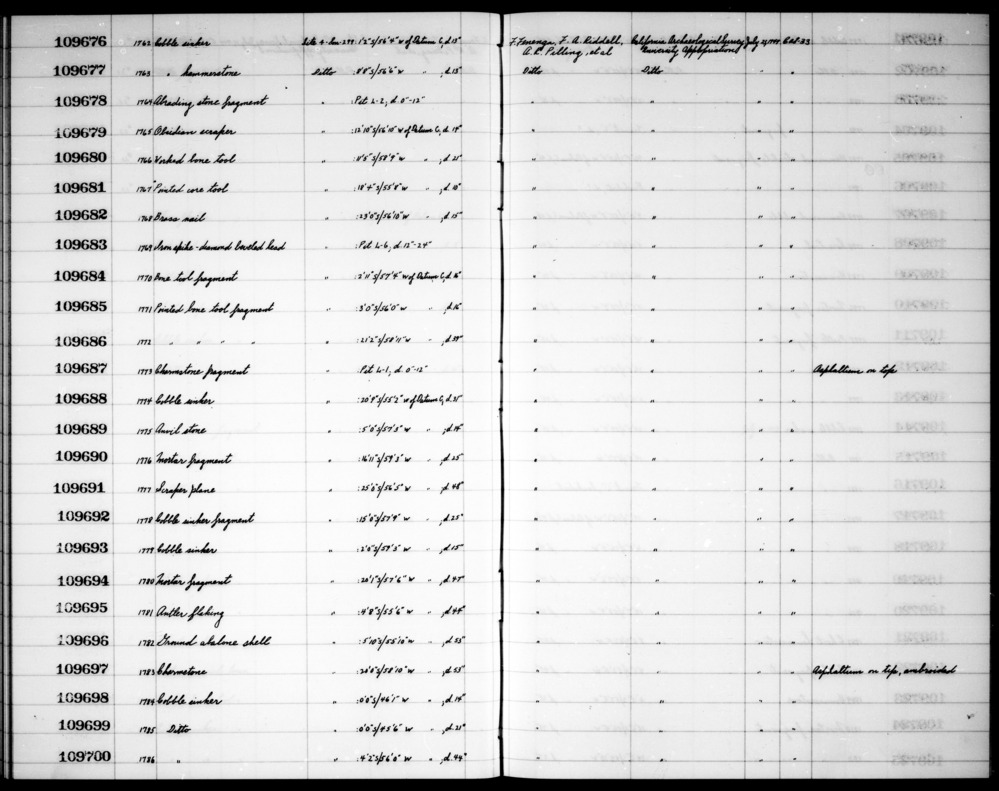 109676 1762 Cobble sinker Site 4-Mrn-277 :1'2"S/56'4" W of Datum C, d. 13" F. Fenenga, F. A. Riddell, California Archaeological Survey July 21, 1949 Cat. 33
A. R. Pilling, et al (University Appropriations)
109677 1763 " hammerstone Ditto :8'8"S/56'6" W " , d. 15" Ditto Ditto " "
109678 1764 Abrading stone fragment " :Pit L-2, d. 0"-12" " " " "
109679 1765 Obsidian scraper " :12'10"S/56'10" W of Datum C, d. 19" " " " "
109680 1766 Worked bone tool " :11'5"S/58'9" W " , d. 21" " " " "
109681 1767 Pointed core tool " :18'4"S/55'8" W " , d. 10" " " " "
109682 1768 Brass nail " :23'0"S/56'10" W " , d. 15" " " " "
109683 1769 Iron spike - diamond beveled head " :Pit L-6, d. 12"-24" " " " "
109684 1770 Bone tool fragment " :2'11"S/57'4" W of Datum C, d. 16" " " " "
109685 1771 Pointed bone tool fragment " :3'0"S/56'0" W " , d. 16" " " " "
109686 1772 " " " " " :21'2"S/58'11" W " , d. 39" " " " "
109687 1773 Charmstone fragment " :Pit L-1, d. 0"-12" " " " " Asphaltum on top
109688 1774 Cobble sinker " :20'9"S/55'2" W of Datum C, d. 31" " " " "
109689 1775 Anvil stone " :5'0"S/57'3" W " , d. 14" " " " "
109690 1776 Mortar fragment " :16'11"S/59'3" W " , d. 25" " " " "
109691 1777 Scraper plane " :25'0"S/56'5" W " , d. 48" " " " "
109692 1778 Cobble sinker fragment " :15'0"S/57'9" W " , d. 23" " " " "
109693 1779 Cobble sinker " :2'6"S/59'3" W " , d. 15" " " " "
109694 1780 Mortar fragment " :20'1"S/57'6" W " , d. 47" " " " "
109695 1781 Antler flaking " :4'8"S/55'6" W " , d. 44" " " " "
109696 1782 Ground abalone shell " :5'10"S/55'10" W " , d. 53" " " " "
109697 1783 Charmstone " :20'6"S/58'10" W " , d. 53" " " " " Asphaltum on tip, ambroided
109698 1784 Cobble sinker " :0'0"S/46'1" W " , d. 14" " " " "
109699 1785 Ditto " :0'0"S/45'6" W " , d. 21" " " " "
109700 1786 " " :4'2"S/56'0" W " , d. 44" " " " "